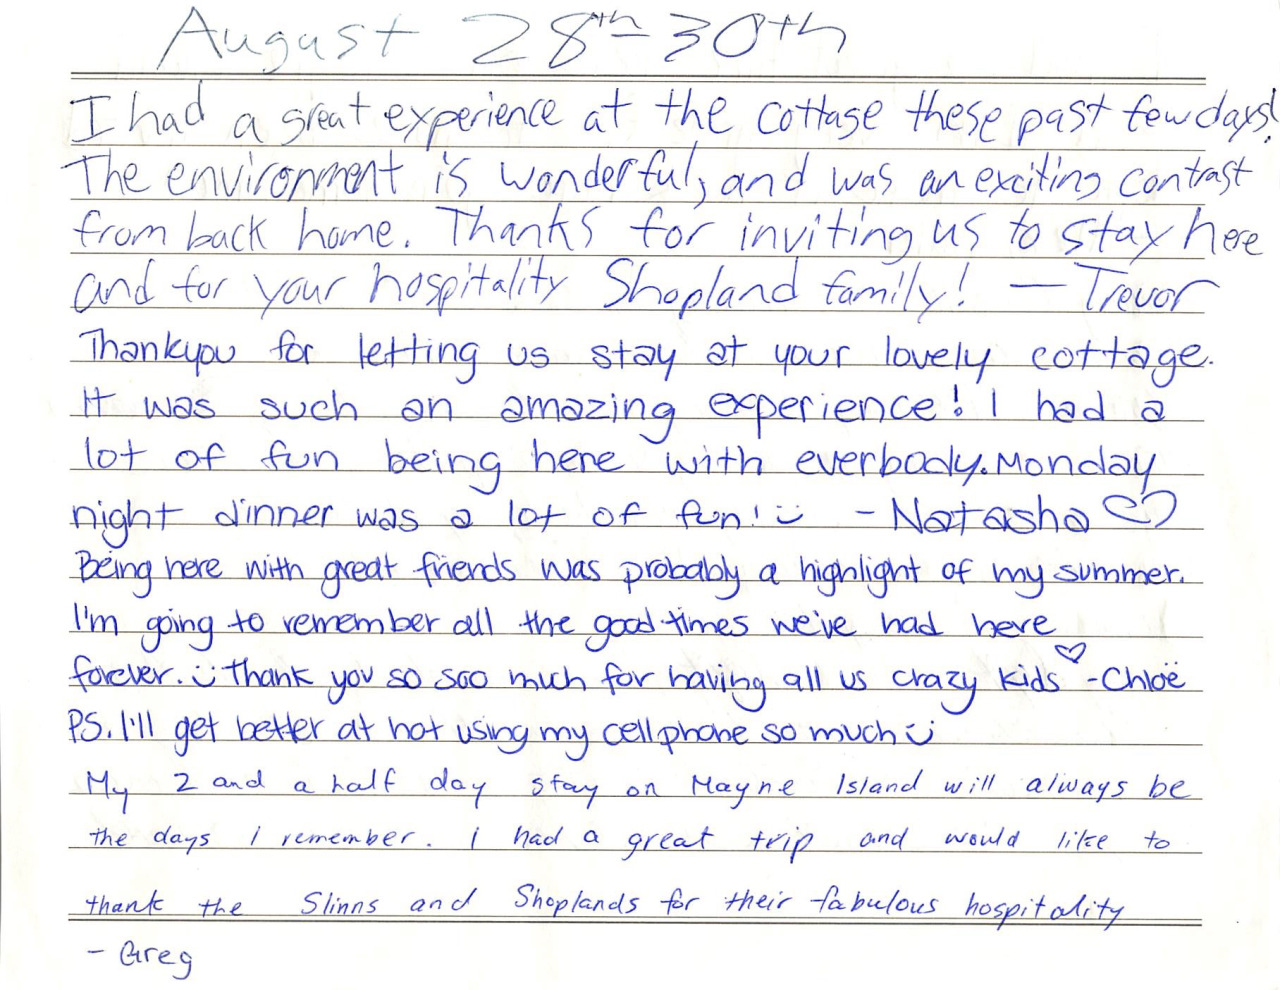 August 28th-30th
I had a great experience at the cottage these past few days!
The environment is wonderful, and was an exciting contrast
from back home. Thanks for inviting us to stay here
and for your hospitality Shopland family! — Trevor
Thankyou for letting us stay at your lovely cottage.
It was such an amazing experience! I had a
lot of fun being here with everbody. Monday
night dinner was a lot of fun! :) - Natasha ♡
Being here with great friends was probably a highlight of my summer.
I'm going to remember all the good times we've had here
forever. :) thank you so soo much for having all us crazy kids ♡ -Chloë
PS. I'll get better at not using my cellphone so much :)
My 2 and a half day stay on Mayne Island will always be
the days I remember. I had a great trip and would like to
thank the Slinns and Shoplands for their fabulous hospitality
- Greg